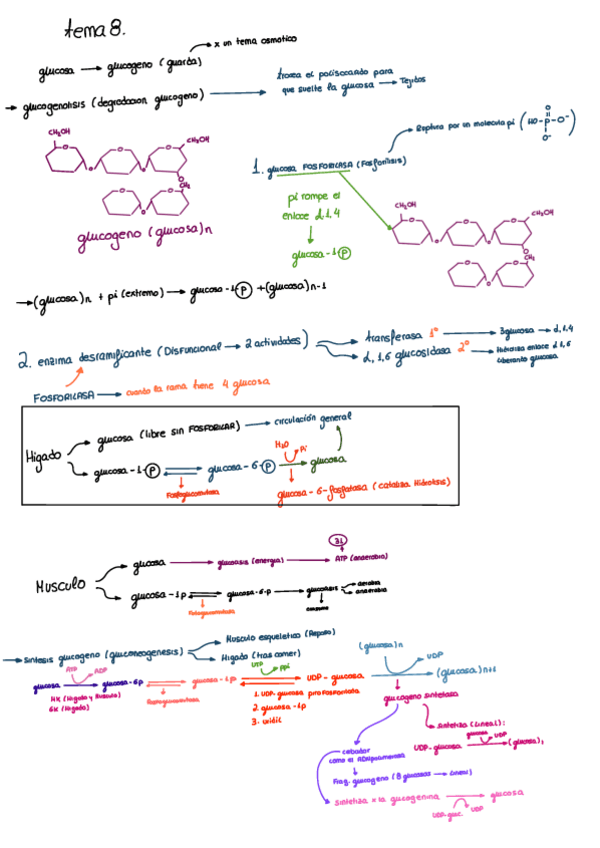 tema 8.
x un tema osmotico
glucosa → glucogeno (guarda)
→ glucogenolisis (degradacion glucogeno) → trocea el polisacarido para
que suelte la glucosa → Tejidos
CH2OH
CH2OH
CH2
glucogeno (glucosa)n
Ruptura por un molecula pi (HO-P-O-)
O
O-
1. glucosa FOSFORILASA (Fosforilisis)
pi rompe el
enlace α.1.4
glucosa-1-P
CH2OH
CH2OH
CH2
→ (glucosa)n + pi (extremo) → glucosa-1-P + (glucosa)n-1
2. enzima desramificante (DisFuncional → 2 actividades)
transferasa 1º → 3glucosa → α.1.4
α, 1,6 glucosidasa 2º → Hidroliza enlace α 1,6
liberanto glucosa
FOSFORILASA → cuando la rama tiene 4 glucosa
Higado
glucosa (libre sin FOSFORILAR) → circulación general
glucosa-1-P
glucosa-6-P
H2O
Pi
glucosa
Fosfoglucomutasa
glucosa-6-fosfatasa (cataliza Hidrolisis)
Musculo
glucosa → glucolisis (energia) → ATP (anaerobia)
glucosa-1p
glucosa-6-p → glucolisis
aerobia
anaerobia
consume
→ Sintesis glucogeno (gluconeogenesis)
Musculo esqueletico (Reposo)
Higado (tras comer)
ATP
ADP
UTP
PPi
glucosa
glucosa-6p
glucosa-1p
UDP-glucosa
(glucosa)n
UDP
(glucosa)n+1
HK (Higado y Musculo)
GK (Higado)
1. UDP-glucosa piroFosForilata
2. glucosa-1p
3. uridil
glucogeno sintetasa
Sintetiza (Lineal):
glucosa
UDP
UDP-glucosa
cebador
Frag. glucogeno (8 glucosas → Lineal)
sintetiza x la glucogenina → glucosa
UDP-gluc.
UDP